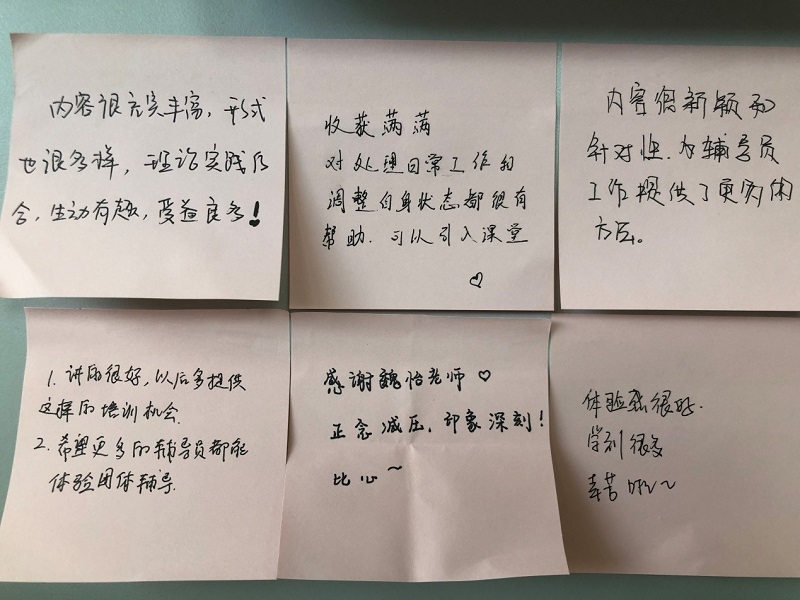 内容很充实丰富，形式
也很多样，理论实践结
合，生动有趣，受益良多！
收获满满
对处理日常工作和
调整自身状态都很有
帮助.可以引入课堂
♡
内容很新颖和
针对性.为辅导员
工作提供了更实用
方法。
1. 讲的很好，以后多提供
这样的培训机会.
2. 希望更多的辅导员都能
体验团体辅导.
感谢魏怡老师 ♡
正念减压，印象深刻！
比心～
体验感很好.
学到很多
辛苦啦～